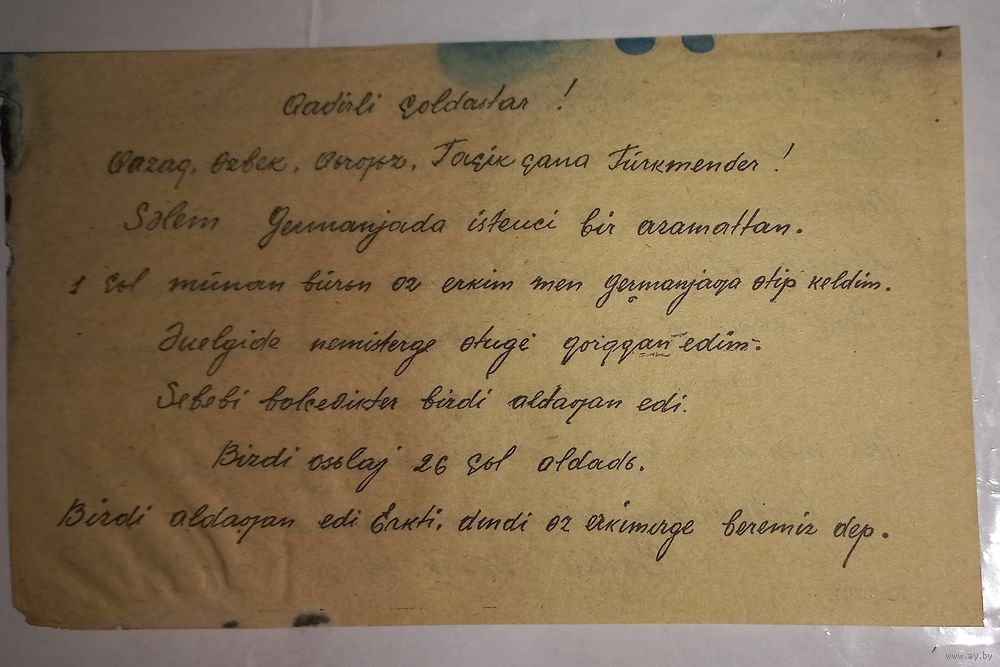 Qadirli çoldastar!
Qazaq, Өzbek, Qьrqьz, Taçik çana Türkmender!
Sәlem Germanjada isteuci bir azamattan.
1 çьl münan bürьn өz erkim men germanjaƣa өtip keldim.
Әuelgide nemisterge өtuge qorqqan edim.
Sebebi bolcevikter bizdi aldaƣan edi.
Bizdi osьlaj 26 çьl aldadь.
Bizdi aldaƣan edi Erkti, dindi өz erkimizge beremiz dep.
www.ay.by